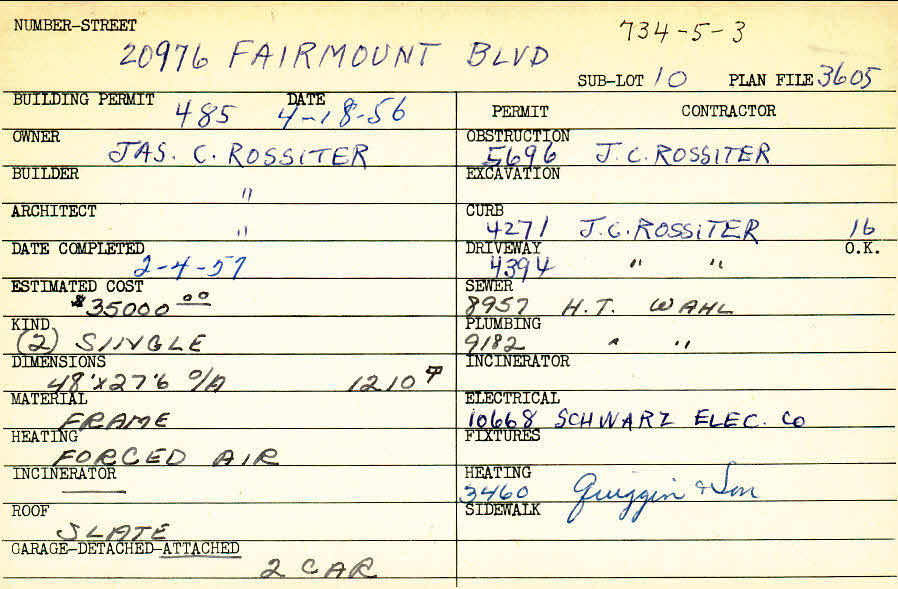 NUMBER-STREET
734-5-3
20976 FAIRMOUNT BLVD
SUB-LOT 10 PLAN FILE 3605
BUILDING PERMIT 485 DATE 4-18-56
PERMIT CONTRACTOR
OWNER JAS. C. ROSSITER
OBSTRUCTION 5696 J.C. ROSSITER
BUILDER "
EXCAVATION
ARCHITECT "
CURB 4271 J.C. ROSSITER 16
DATE COMPLETED 2-4-57
DRIVEWAY 4394 " " O.K.
ESTIMATED COST $35000 00
SEWER 8957 H.T. WAHL
KIND (2) SINGLE
PLUMBING 9182 " "
DIMENSIONS 48'x27'6 O/A 1210
INCINERATOR
MATERIAL FRAME
ELECTRICAL 10668 SCHWARZ ELEC. CO
HEATING FORCED AIR
FIXTURES
INCINERATOR —
HEATING 3460 Quiggin & Son
ROOF SLATE
SIDEWALK
GARAGE-DETACHED-ATTACHED 2 CAR